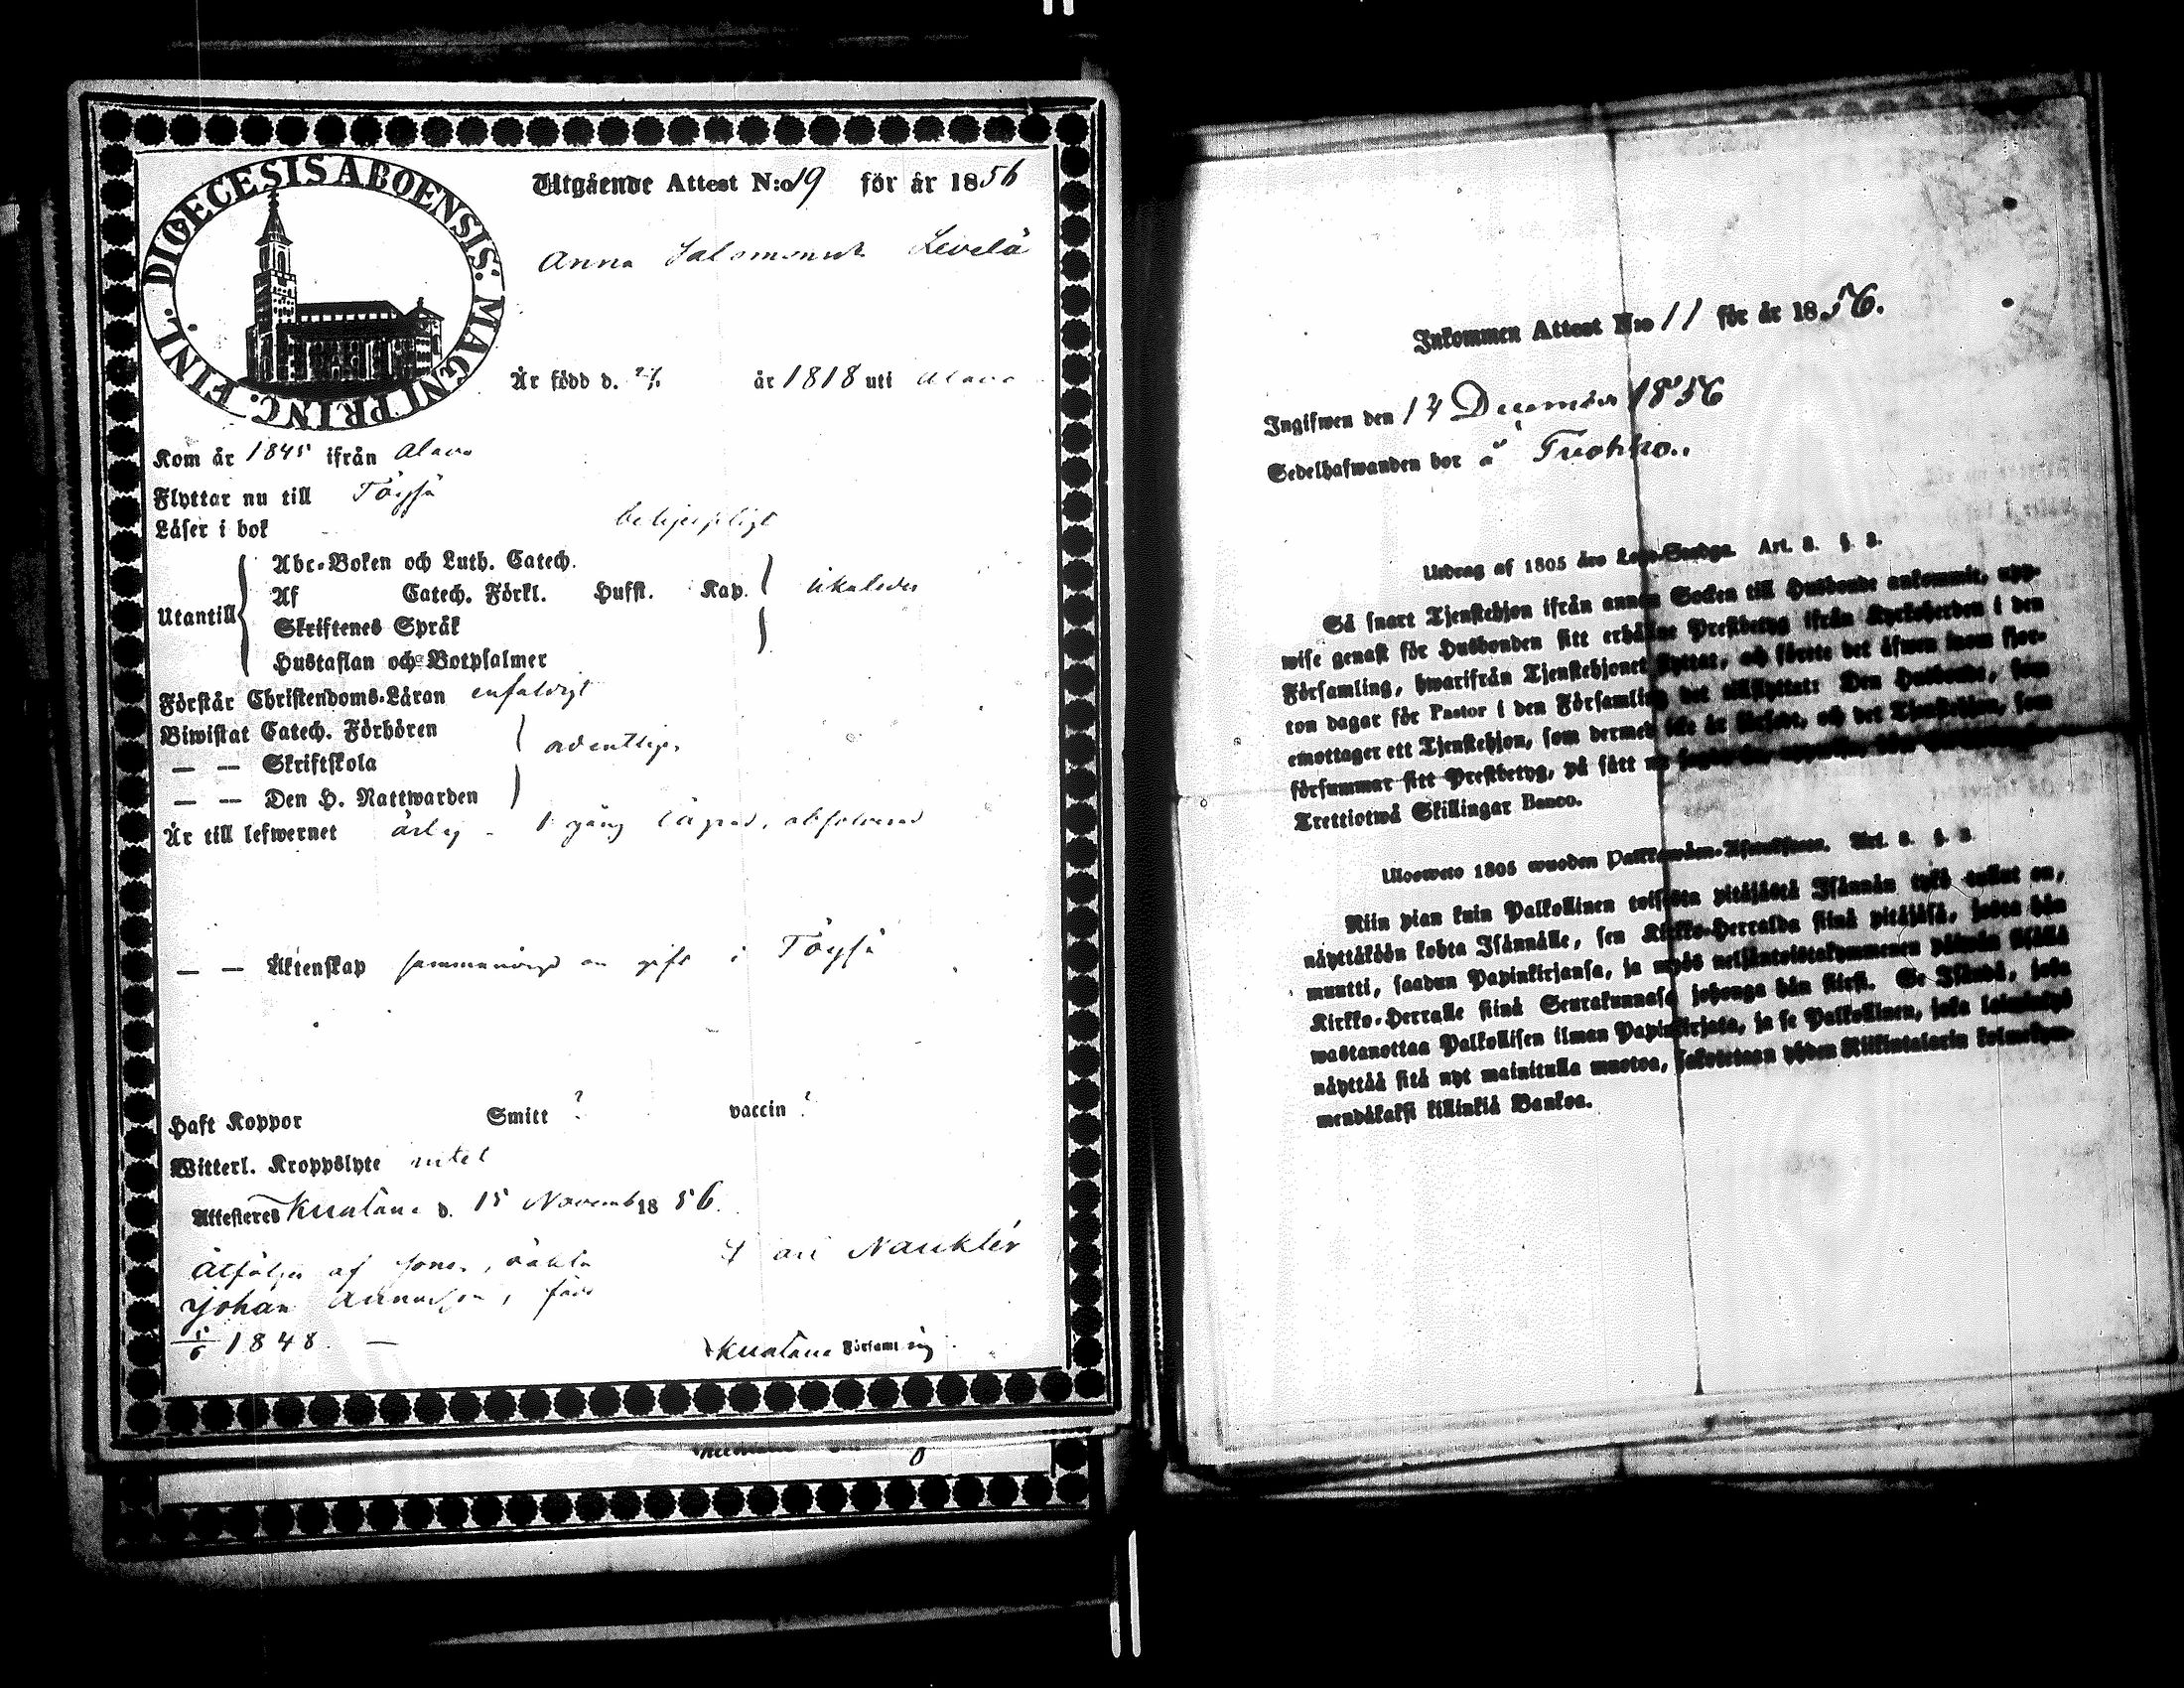 DIOECESIS ABOENSIS: MAGNI PRINC. FINL.
Utgående Attest N:o 19 för år 1856
Anna Salomonsdr Levelä
Är född d. år 1818 uti Alavo
Kom år 1845 ifrån Alavo
Flyttar nu till Töysä
Läser i bok behjelpligt
Utantill
Abc-Boken och Luth. Catech.
Af Catech. Förkl. Hufst. Kap. likaledes
Skriftenes Språk
Hustaflan och Botpsalmer
Förstår Christendoms-Läran enfaldigt
Biwistat Catech. Förhören
— — Skriftskola ordentligen
— — Den H. Nattwarden
Är till lefwernet ärlig - 1 gång lägrad, absolverad
— — Äktenskap gift i Töysä
Haft Koppor Smitt ? vaccin ?
Witterl. Kroppslyte intet
Attesteres Kuortane d. 15 Novemb 1856.
Carl Nauklér
Åtföljes af sonen, oäkta
Johan Annasson, född
5/6 1848. —
Kuortane Församling.
Inkommen Attest N:o 11 för år 1856.
Ingifwen den 14 December 1856
Sedelhafwanden bor å Tuohko.
Utdrag af 1805 års Lego-Stadga. Art. 2. §. 2.
Så snart Tjenstehjon ifrån annan Socken till Husbonde ankommit, upp-
wise genast för Husbonden sitt erhållne Prestbetyg ifrån Kyrkoherden i den
Församling, hwarifrån Tjenstehjonet flyttat, och förete det äfwen inom fjor-
ton dagar för Pastor i den Församling det tillflyttat: Den Husbonde, som
emottager ett Tjenstehjon, som dermed icke är försedt, och det Tjenstehjon, som
försummar sitt Prestbetyg, på sätt nu sagdt
Trettiotwå Skillingar Banco.
Ulosweto 1805 wuoden Palkkawäen-Asetuksesta. Art. 2. §. 2.
Niin pian kuin Palkollinen toisesta pitäjästä Isännän tykö tullut on,
näyttäköön kohta Isännälle, sen Kirkko-Herralda siinä pitäjäsä, josta hän
muutti, saadun Papinkirjansa, ja myös neljäntoistakymmenen päiwän sisällä
Kirkko-Herralle siinä Seurakunnasa johonga hän siirsi. Se Isändä, joka
wastanottaa Palkollisen ilman Papinkirjata, ja se Palkollinen, joka laiminlyö
näyttää sitä nyt mainitulla muotoa, sakotetaan yhden Riikintalarin kolmekym-
mendäkaksi killinkiä Bankoa.